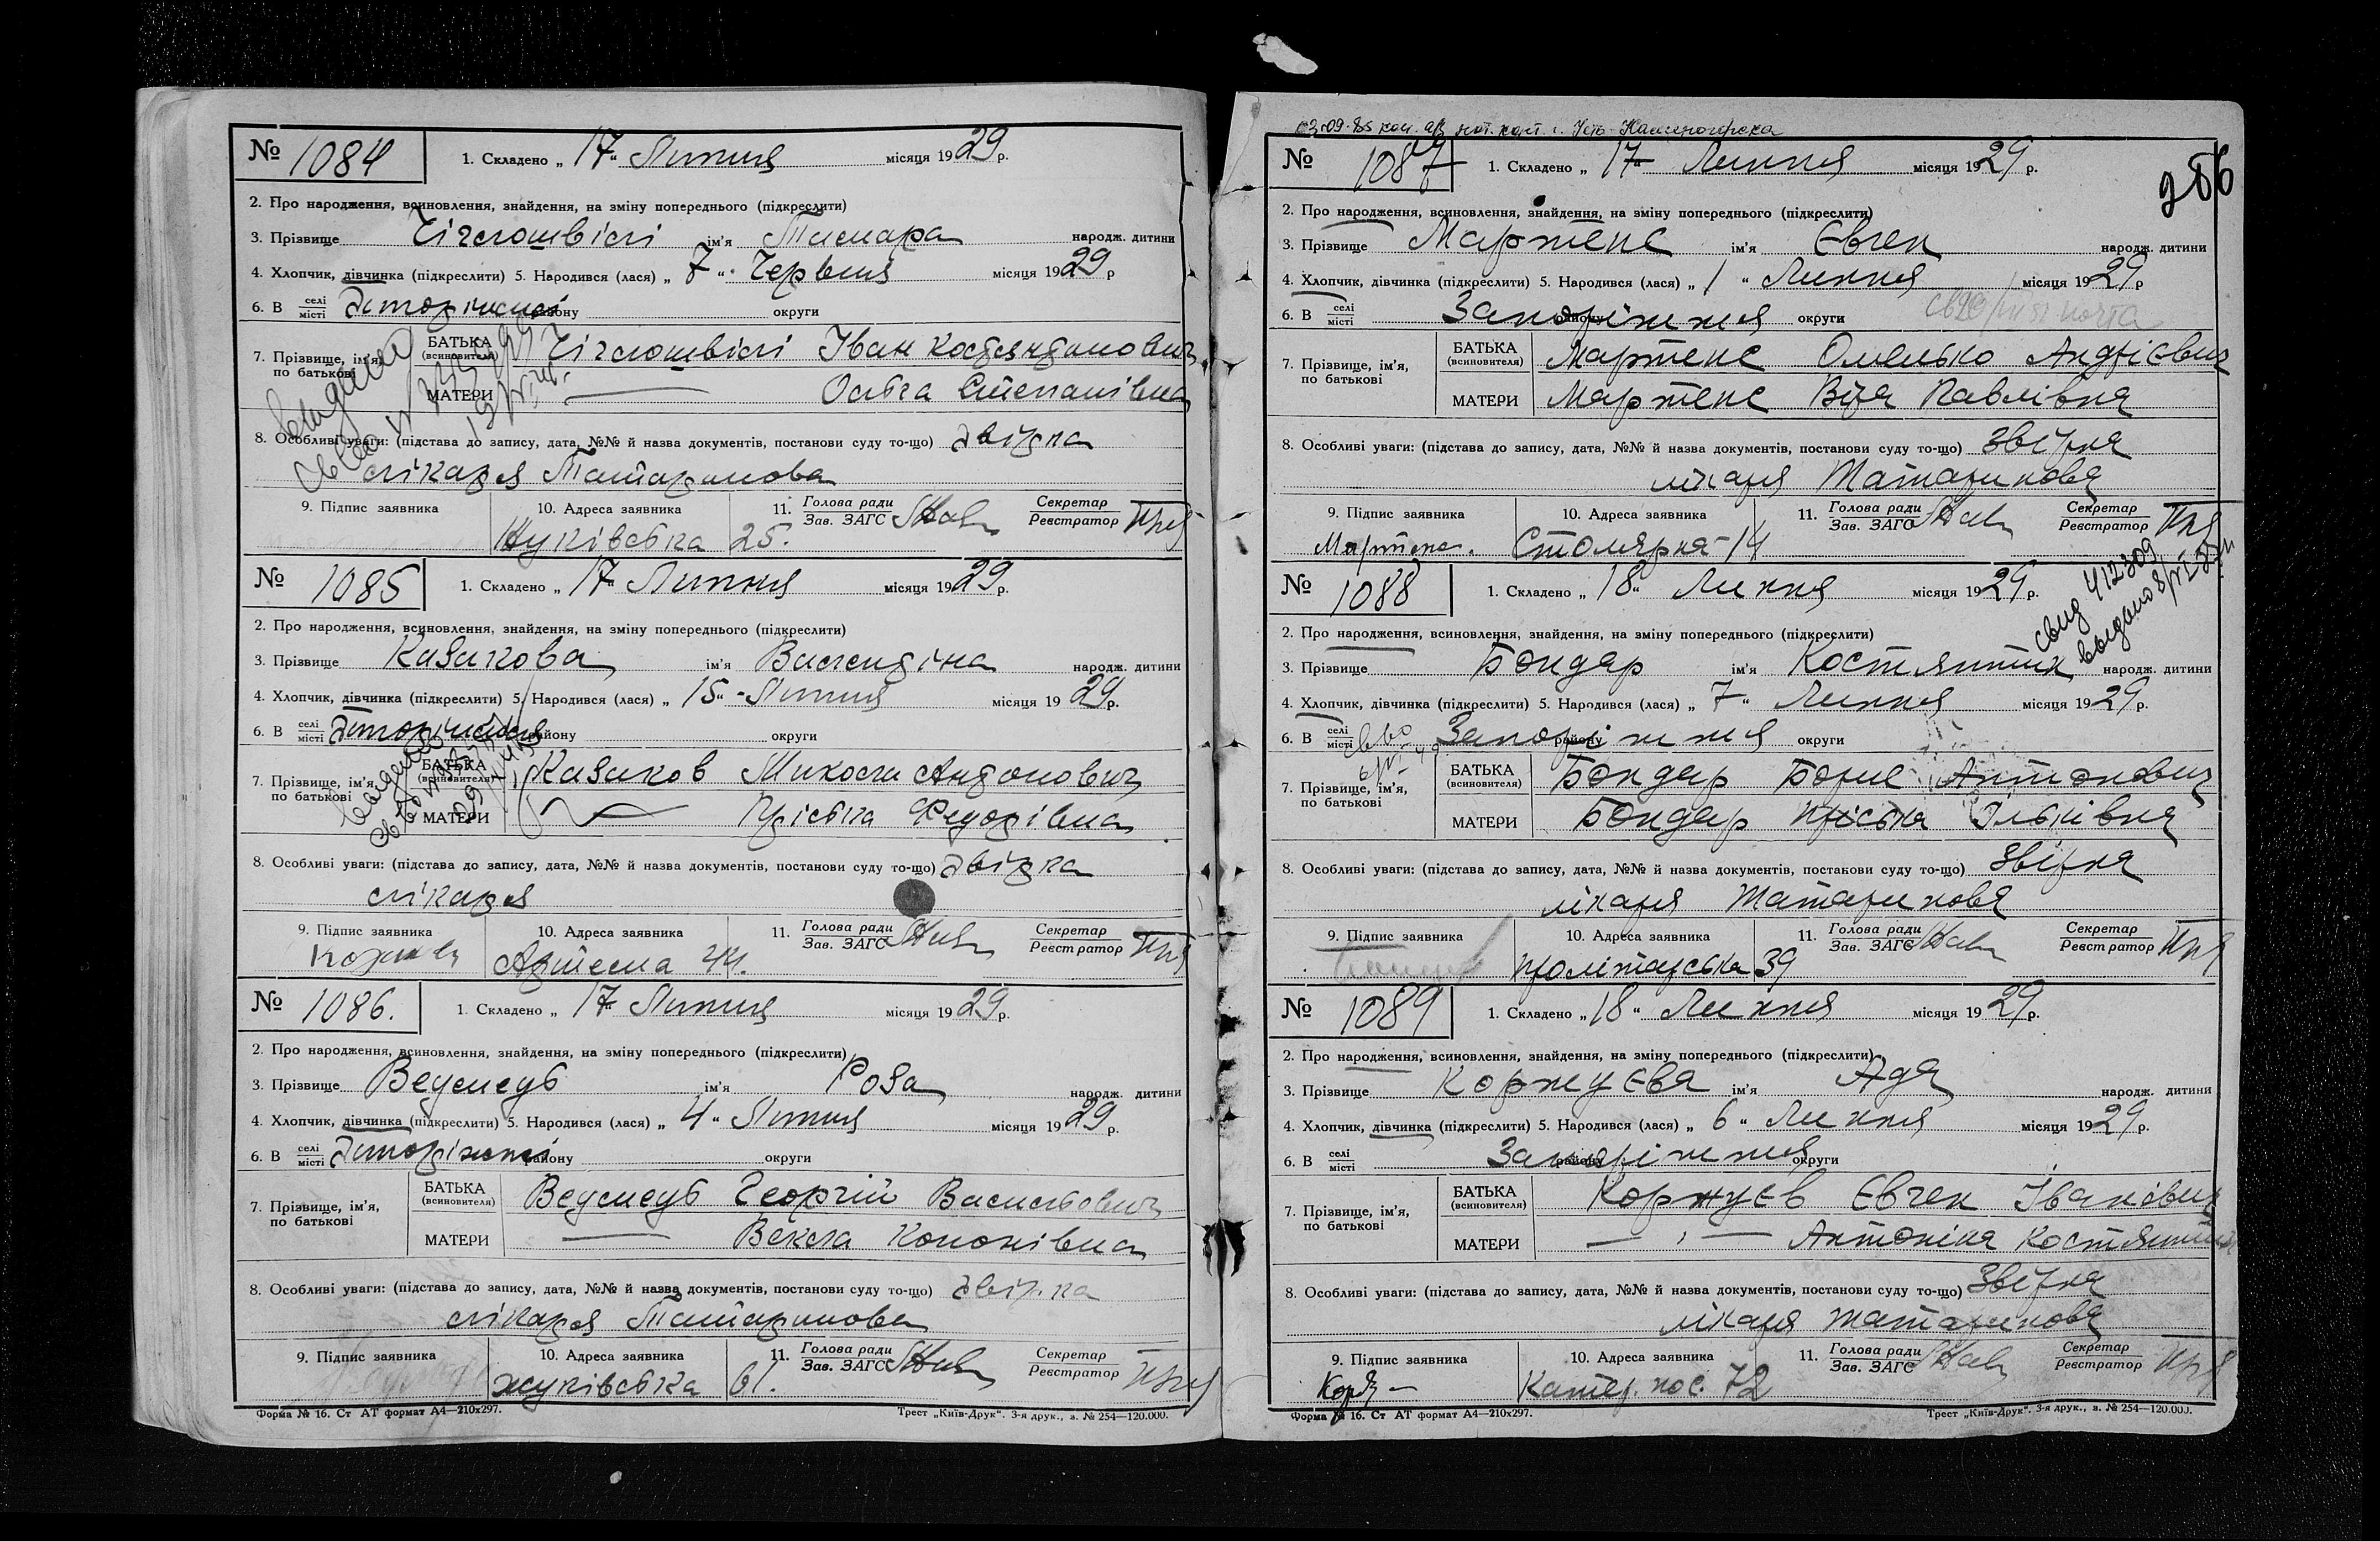 № 1084 1. Складено „ 17 " Липня місяця 1929 р.
2. Про народження, всиновлення, знайдення, на зміну попереднього (підкреслити)
3. Прізвище ім'я Тамара народж. дитини
4. Хлопчик, дівчинка (підкреслити) 5. Народився (лася) „ 7 " Червня місяця 1929 р
6. В селі місті Запоріжжі району округи
7. Прізвище, ім'я, по батькові БАТЬКА (всиновителя) Іван Костянтинович
МАТЕРИ — Ольга Степанівна
8. Особливі уваги: (підстава до запису, дата, №№ й назва документів, постанови суду то-що) звірка
лікаря Татаринова
9. Підпис заявника 10. Адреса заявника 11. Голова ради Зав. ЗАГС Секретар Реєстратор
Жуківська 25.
№ 1085 1. Складено „ 17 " Липня місяця 1929 р.
2. Про народження, всиновлення, знайдення, на зміну попереднього (підкреслити)
3. Прізвище Казакова ім'я Валендіна народж. дитини
4. Хлопчик, дівчинка (підкреслити) 5. Народився (лася) „ 15 " Липня місяця 1929 р.
6. В селі місті Запоріжжі району округи
7. Прізвище, ім'я, по батькові БАТЬКА (всиновителя) Казаков Микола Андонович
МАТЕРИ — Прісъка Федорівна
8. Особливі уваги: (підстава до запису, дата, №№ й назва документів, постанови суду то-що) звірка
лікаря
9. Підпис заявника 10. Адреса заявника 11. Голова ради Зав. ЗАГС Секретар Реєстратор
Артема 44.
№ 1086. 1. Складено „ 17 " Липня місяця 1929 р.
2. Про народження, всиновлення, знайдення, на зміну попереднього (підкреслити)
3. Прізвище Ведмедь ім'я Роза народж. дитини
4. Хлопчик, дівчинка (підкреслити) 5. Народився (лася) „ 4 " Липня місяця 1929 р.
6. В селі місті Запоріжжі району округи
7. Прізвище, ім'я, по батькові БАТЬКА (всиновителя) Ведмедь Георгій Васильович
МАТЕРИ — Векла Кононівна
8. Особливі уваги: (підстава до запису, дата, №№ й назва документів, постанови суду то-що) звірка
лікаря Татаринова
9. Підпис заявника 10. Адреса заявника 11. Голова ради Зав. ЗАГС Секретар Реєстратор
жуківська 61.
Форма № 16. Ст АТ формат А4—210х297. Трест „Київ-Друк". 3-я друк., з. № 254—120.000.
03.09.85 нот. конт. г. Усть-Каменогорска
256
№ 1087 1. Складено „ 17 " Липня місяця 1929 р.
2. Про народження, всиновлення, знайдення, на зміну попереднього (підкреслити)
3. Прізвище Мартенс ім'я Євген народж. дитини
4. Хлопчик, дівчинка (підкреслити) 5. Народився (лася) „ 1 " Липня місяця 1929 р
6. В селі місті Запоріжжя району округи
7. Прізвище, ім'я, по батькові БАТЬКА (всиновителя) Мартенс Омелько Андрієвич
МАТЕРИ Мартенс Віра Павлівна
8. Особливі уваги: (підстава до запису, дата, №№ й назва документів, постанови суду то-що) звірка
лікаря Татаринова
9. Підпис заявника 10. Адреса заявника 11. Голова ради Зав. ЗАГС Секретар Реєстратор
Мартенс. Столярна-14
№ 1088 1. Складено „ 18 " Липня місяця 1929 р.
свид 412309
выдано
2. Про народження, всиновлення, знайдення, на зміну попереднього (підкреслити)
3. Прізвище Бондар ім'я Костянтин народж. дитини
4. Хлопчик, дівчинка (підкреслити) 5. Народився (лася) „ 7 " Липня місяця 1929 р.
6. В селі місті Запоріжжя району округи
7. Прізвище, ім'я, по батькові БАТЬКА (всиновителя) Бондар Борис Антонович
МАТЕРИ Бондар Пріська Ільківна
8. Особливі уваги: (підстава до запису, дата, №№ й назва документів, постанови суду то-що) Звірка
лікаря Татаринова
9. Підпис заявника 10. Адреса заявника 11. Голова ради Зав. ЗАГС Секретар Реєстратор
Пролітарська 39
№ 1089 1. Складено „ 18 " Липня місяця 1929 р.
2. Про народження, всиновлення, знайдення, на зміну попереднього (підкреслити)
3. Прізвище Коржуєва ім'я Ада народж. дитини
4. Хлопчик, дівчинка (підкреслити) 5. Народився (лася) „ 6 " Липня місяця 1929 р.
6. В селі місті Запоріжжя району округи
7. Прізвище, ім'я, по батькові БАТЬКА (всиновителя) Коржуєв Євген Іванович
МАТЕРИ — " — Антоніна Костянтин
8. Особливі уваги: (підстава до запису, дата, №№ й назва документів, постанови суду то-що) Звірка
лікаря Татаринова
9. Підпис заявника 10. Адреса заявника 11. Голова ради Зав. ЗАГС Секретар Реєстратор
Катер. пос. 72
Форма № 16. Ст АТ формат А4—210х297. Трест „Київ-Друк". 3-я друк., з. № 254—120.000.